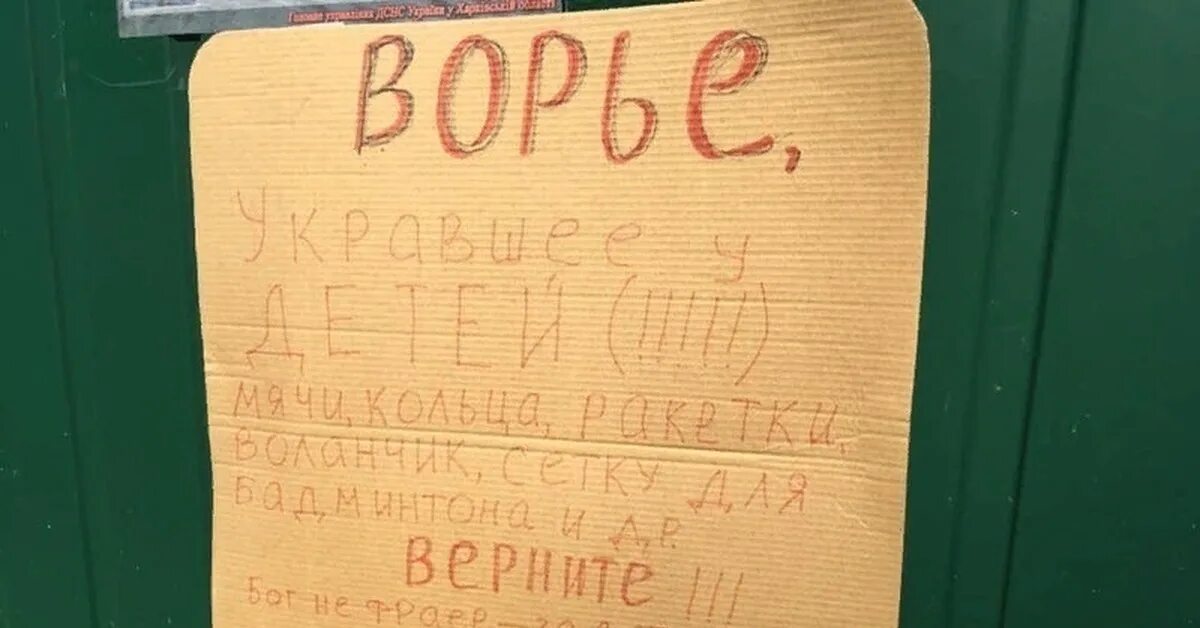 Головне управління ДСНС України у Харківській області
ВОРЬЕ,
Укравшее у
ДЕТЕЙ (!!!!!!)
мячи, кольца, ракетки,
воланчик, сетку для
бадминтона и др.
верните !!!
Бог не фраер —